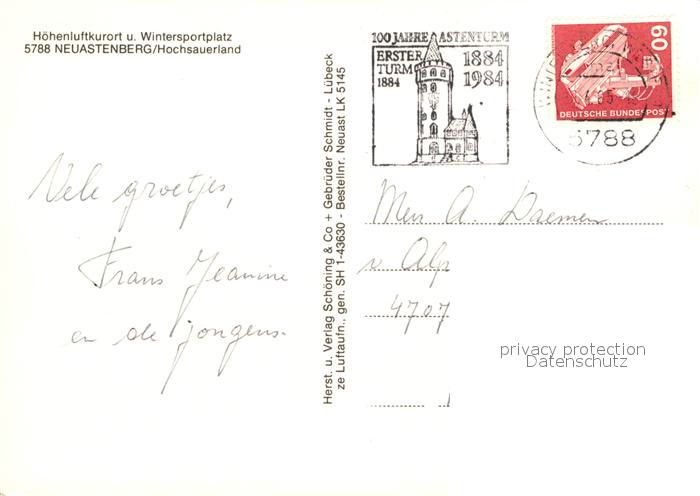 Höhenluftkurort u. Wintersportplatz
5788 NEUASTENBERG/Hochsauerland
100 JAHRE ASTENTURM
ERSTER
TURM
1884
1884
1984
60
DEUTSCHE BUNDESPOST
5788
Vele groetjes,
Frans Jeanine
en de jongens.
Herst. u. Verlag Schöning & Co + Gebrüder Schmidt - Lübeck
ze Luftaufn., gen. SH 1-43630 - Bestellnr. Neuast LK 5145
Men A. Daemen
v Alp
4707
privacy protection
Datenschutz